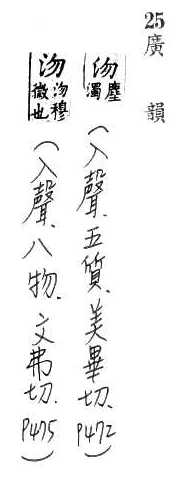 25廣韻
沕 塵濁(入聲.五質.美畢切.P472)
沕 沕穆微也(入聲.八物.文弗切.P475)